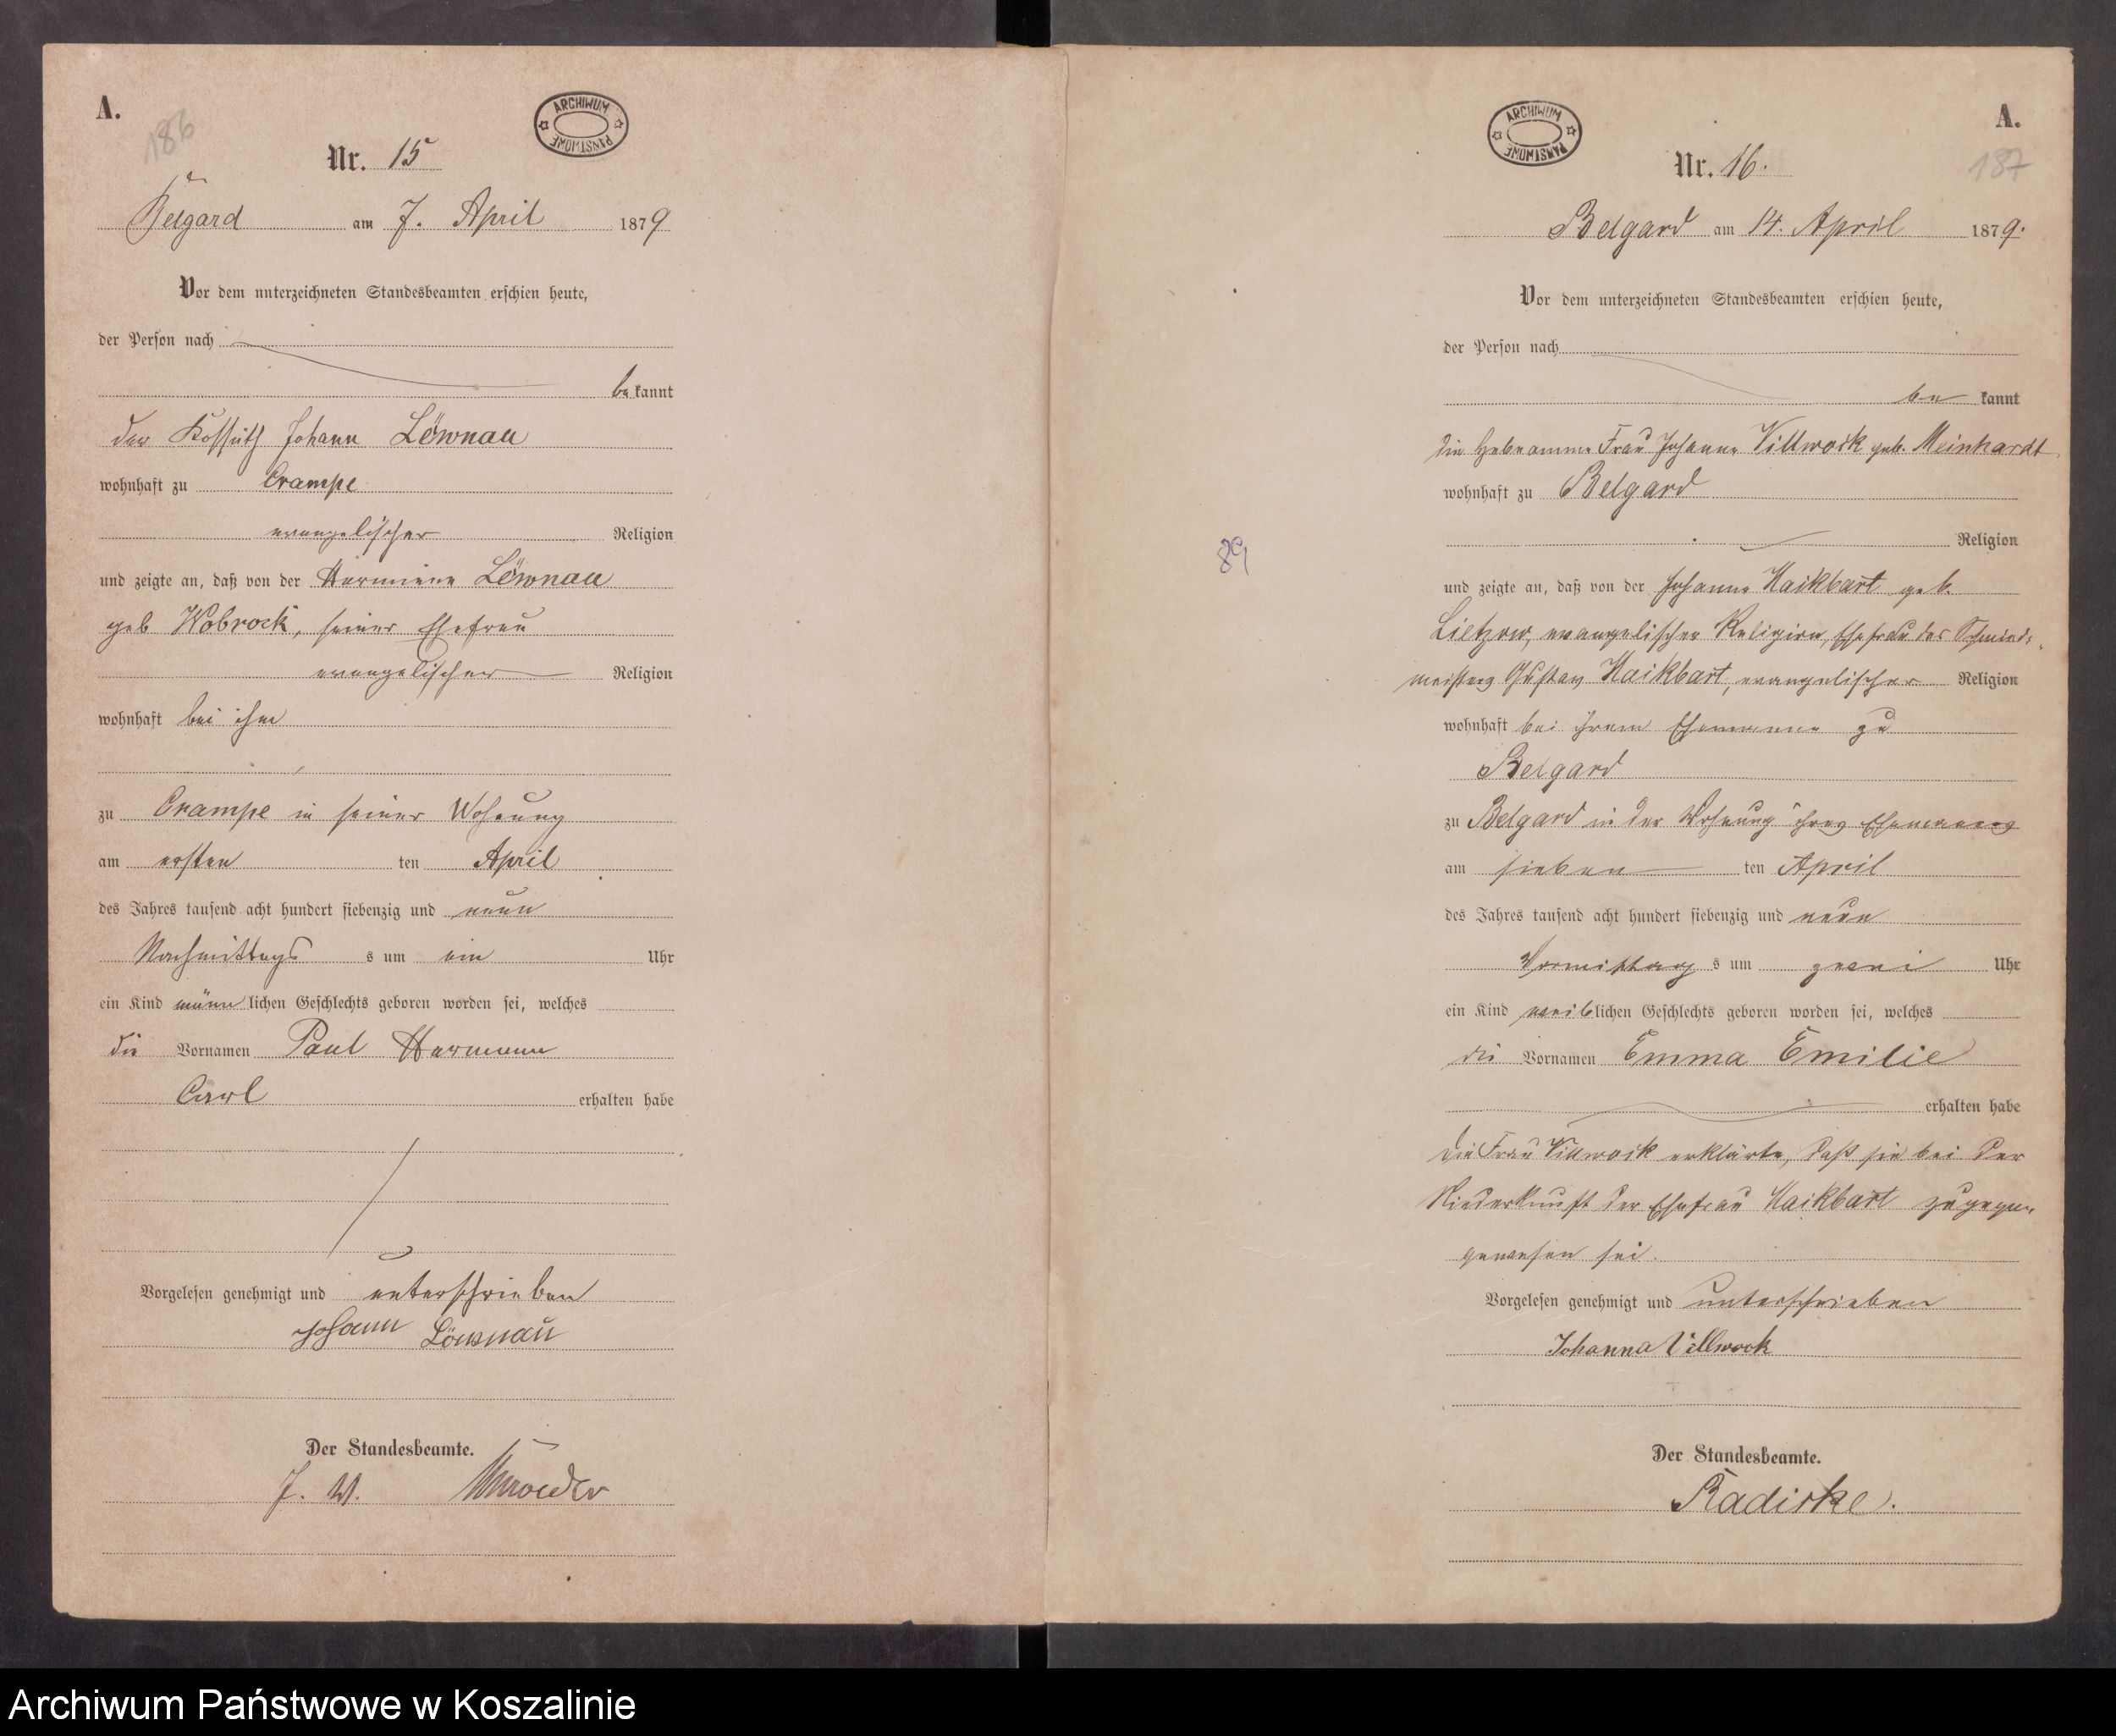 A.
186
ARCHIWUM PAŃSTWOWE
Nr. 15
Belgard am 7. April 1879
Vor dem unterzeichneten Standesbeamten erschien heute,
der Person nach
bekannt
der Kossäth Johann Löwnau
wohnhaft zu Crampe
evangelischer Religion
und zeigte an, daß von der Hermine Löwnau
geb Wobrock, seiner Ehefrau
evangelischer Religion
wohnhaft bei ihm
zu Crampe in seiner Wohnung
am ersten ten April
des Jahres tausend acht hundert siebenzig und neun
Nachmittags s um ein Uhr
ein Kind männlichen Geschlechts geboren worden sei, welches
die Vornamen Paul Hermann
Carl erhalten habe
Vorgelesen genehmigt und unterschrieben
Johann Löwnau
Der Standesbeamte.
J. W. Schroeder
A.
187
ARCHIWUM PAŃSTWOWE
Nr. 16.
Belgard am 14. April 1879.
Vor dem unterzeichneten Standesbeamten erschien heute,
der Person nach
be kannt
die Hebeamme Frau Johanne Villwock geb. Meinhardt
wohnhaft zu Belgard
Religion
89
und zeigte an, daß von der Johanne Haikbart geb.
Lietzow, evangelischer Religion, Ehefrau des Schmiede-
meisters Gustav Haikbart, evangelischer Religion
wohnhaft bei ihrem Ehemanne zu
Belgard
zu Belgard in der Wohnung ihres Ehemannes
am sieben ten April
des Jahres tausend acht hundert siebenzig und neun
Vormittag s um zwei Uhr
ein Kind weiblichen Geschlechts geboren worden sei, welches
die Vornamen Emma Emilie
erhalten habe
Die Frau Villwock erklärte, daß sie bei der
Niederkunft der Ehefrau Haikbart zugegen
gewesen sei.
Vorgelesen genehmigt und unterschrieben
Johanna Villwock
Der Standesbeamte.
Radiske.
Archiwum Państwowe w Koszalinie